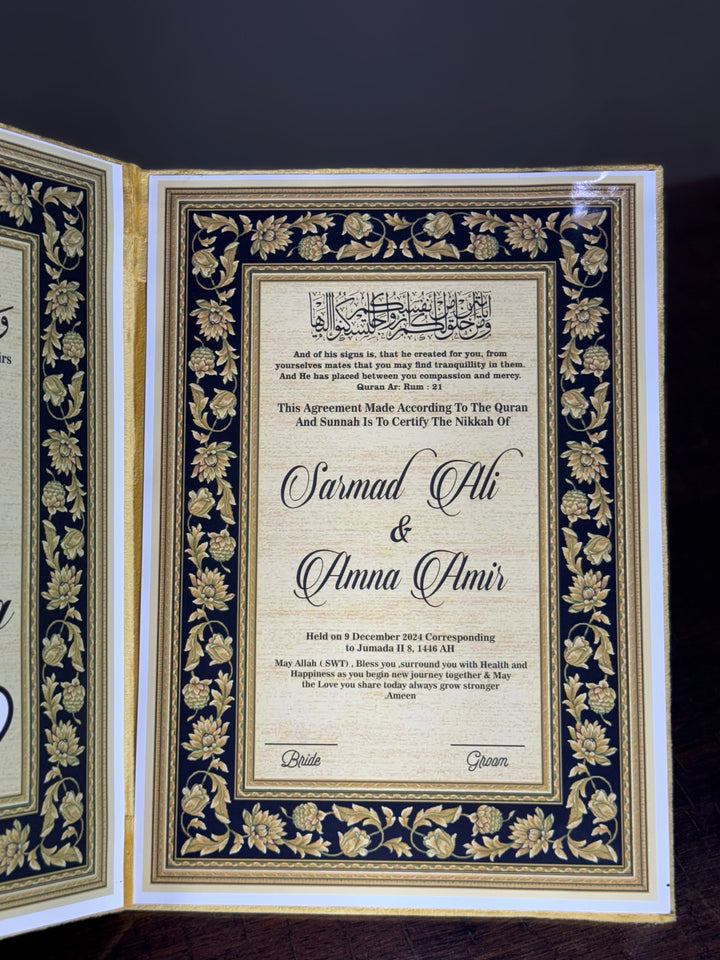 و
irs
a
وَمِنْ آيَاتِهِ أَنْ خَلَقَ لَكُمْ مِنْ أَنْفُسِكُمْ أَزْوَاجًا لِتَسْكُنُوا إِلَيْهَا
And of his signs is, that he created for you, from
yourselves mates that you may find tranquillity in them.
And He has placed between you compassion and mercy.
Quran Ar: Rum : 21
This Agreement Made According To The Quran
And Sunnah Is To Certify The Nikkah Of
Sarmad Ali
&
Amna Amir
Held on 9 December 2024 Corresponding
to Jumada II 8, 1446 AH
May Allah ( SWT) , Bless you ,surround you with Health and
Happiness as you begin new journey together & May
the Love you share today always grow stronger
.Ameen
Bride Groom